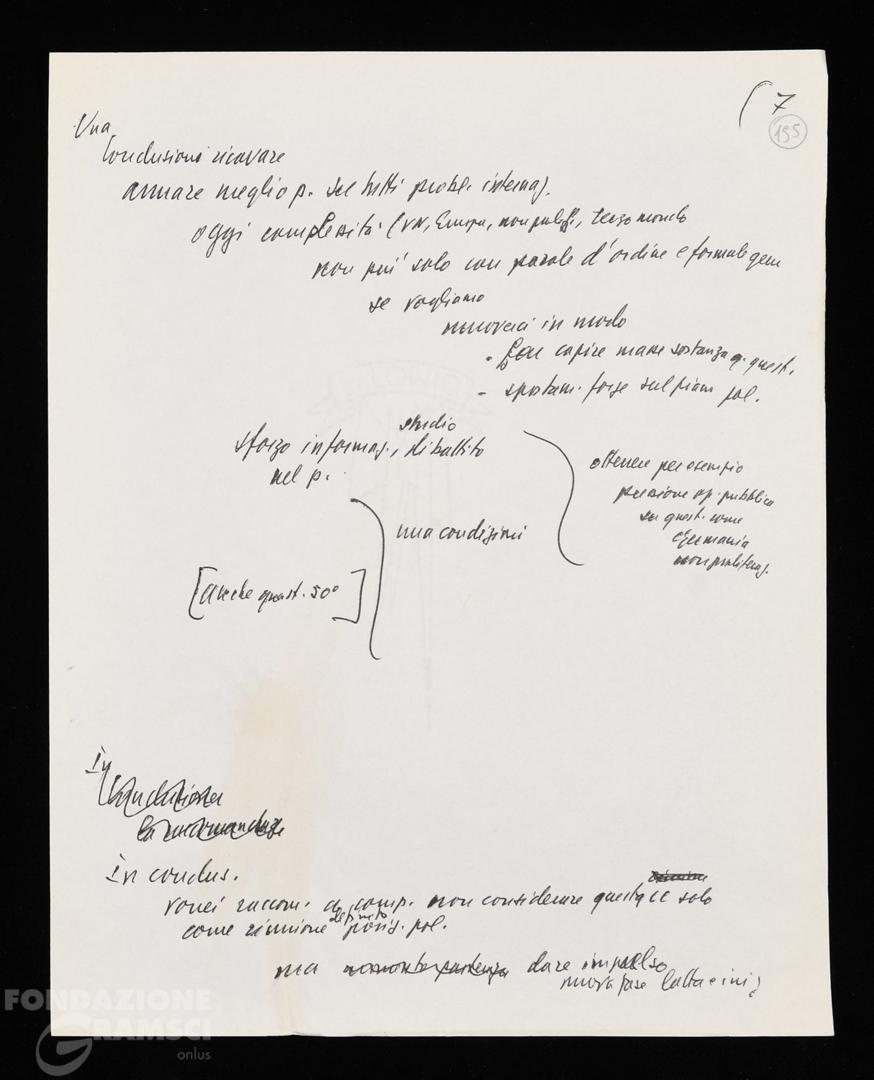 7
195
Una
Conclusioni ricavare
armare meglio p. su tutti probl. internaz.
oggi complessità (VN, Europa, non prolif., terzo mondo
non più solo con parole d'ordine e formule gen
se vogliamo
muoverci in modo
- far capire masse sostanza q. quest.
- spostam. forze sul piano pol.
studio
sforzo informaz., dibattito
nel p.
ottenere per esempio
pressione op. pubblica
su quest. come
Germania
non proliferaz.
una condizioni
[anche quest. 50°]
In
In conclus.
vorrei raccom. a comp. non considerare questo CC solo
come riunione definito posiz. pol.
ma dare impulso
nuova fase lotta e iniz
FONDAZIONE
GRAMSCI
onlus